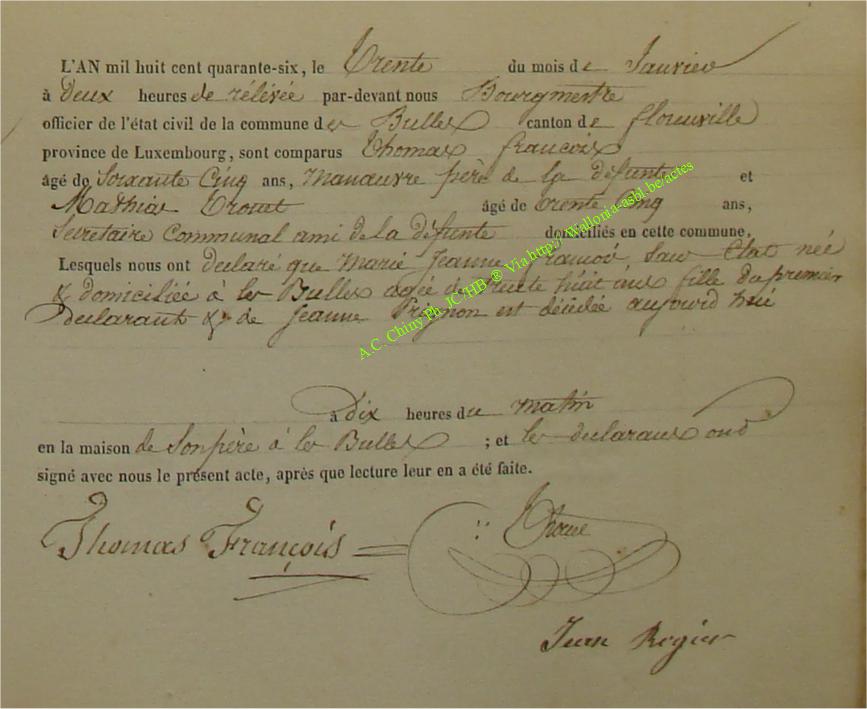 L'AN mil huit cent quarante-six, le Trente du mois de Janvier
à Deux heures de rélévée par-devant nous Bourgmestre
officier de l'état civil de la commune de les Bulles canton de florenville
province de Luxembourg, sont comparus Thomas françois
âgé de Soixante Cinq ans, manœuvre père de la défunte et
Mathias âgé de trente Cinq ans,
Secretaire Communal ami de la défunte domiciliés en cette commune,
Lesquels nous ont declaré que Marie Jeanne françois Sans Etat née
& domiciliée à les Bulles agée de trente huit ans fille du premier
declarant & de Jeanne Prignon est décédée aujourd hui
à Dix heures du matin
en la maison de Son père à les Bulles ; et les declarants ont
signé avec nous le présent acte, après que lecture leur en a été faite.
Thomas François
Jean
A.C. Chiny Ph. JC/HB ® Via http://wallonia-asbl.be/actes